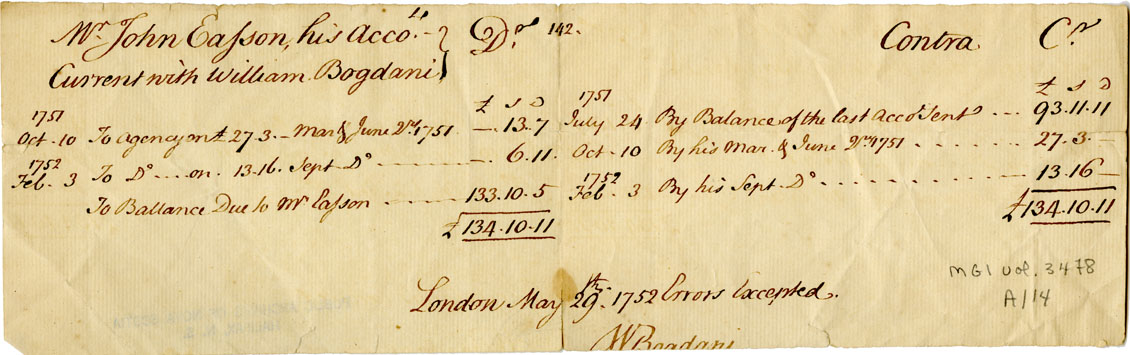 Mr. John Easson, his Acco.tt Dr. 142.
Current with William Bogdani
£ s D
1751
Oct. 10 To agency on £ 27.3.- Mar. & June Qrs. 1751 - 13.7
1752
Feb. 3 To Do. on 13.16. Sept. Do. 6.11.
To Ballance Due to Mr. Easson 133.10.5
£134.10.11
Contra. Cr.
£ s D
1751
July 24 By Balance of the last Acco.t Sent 93.11.11
Oct. 10 By his Mar. & June Qrs. 1751 27.3.-
1752
Feb. 3 By his Sept. Do. 13.16-
£134.10.11
London May 29th. 1752 Errors Excepted.
W Bogdani
MG1 vol. 3478
A/14